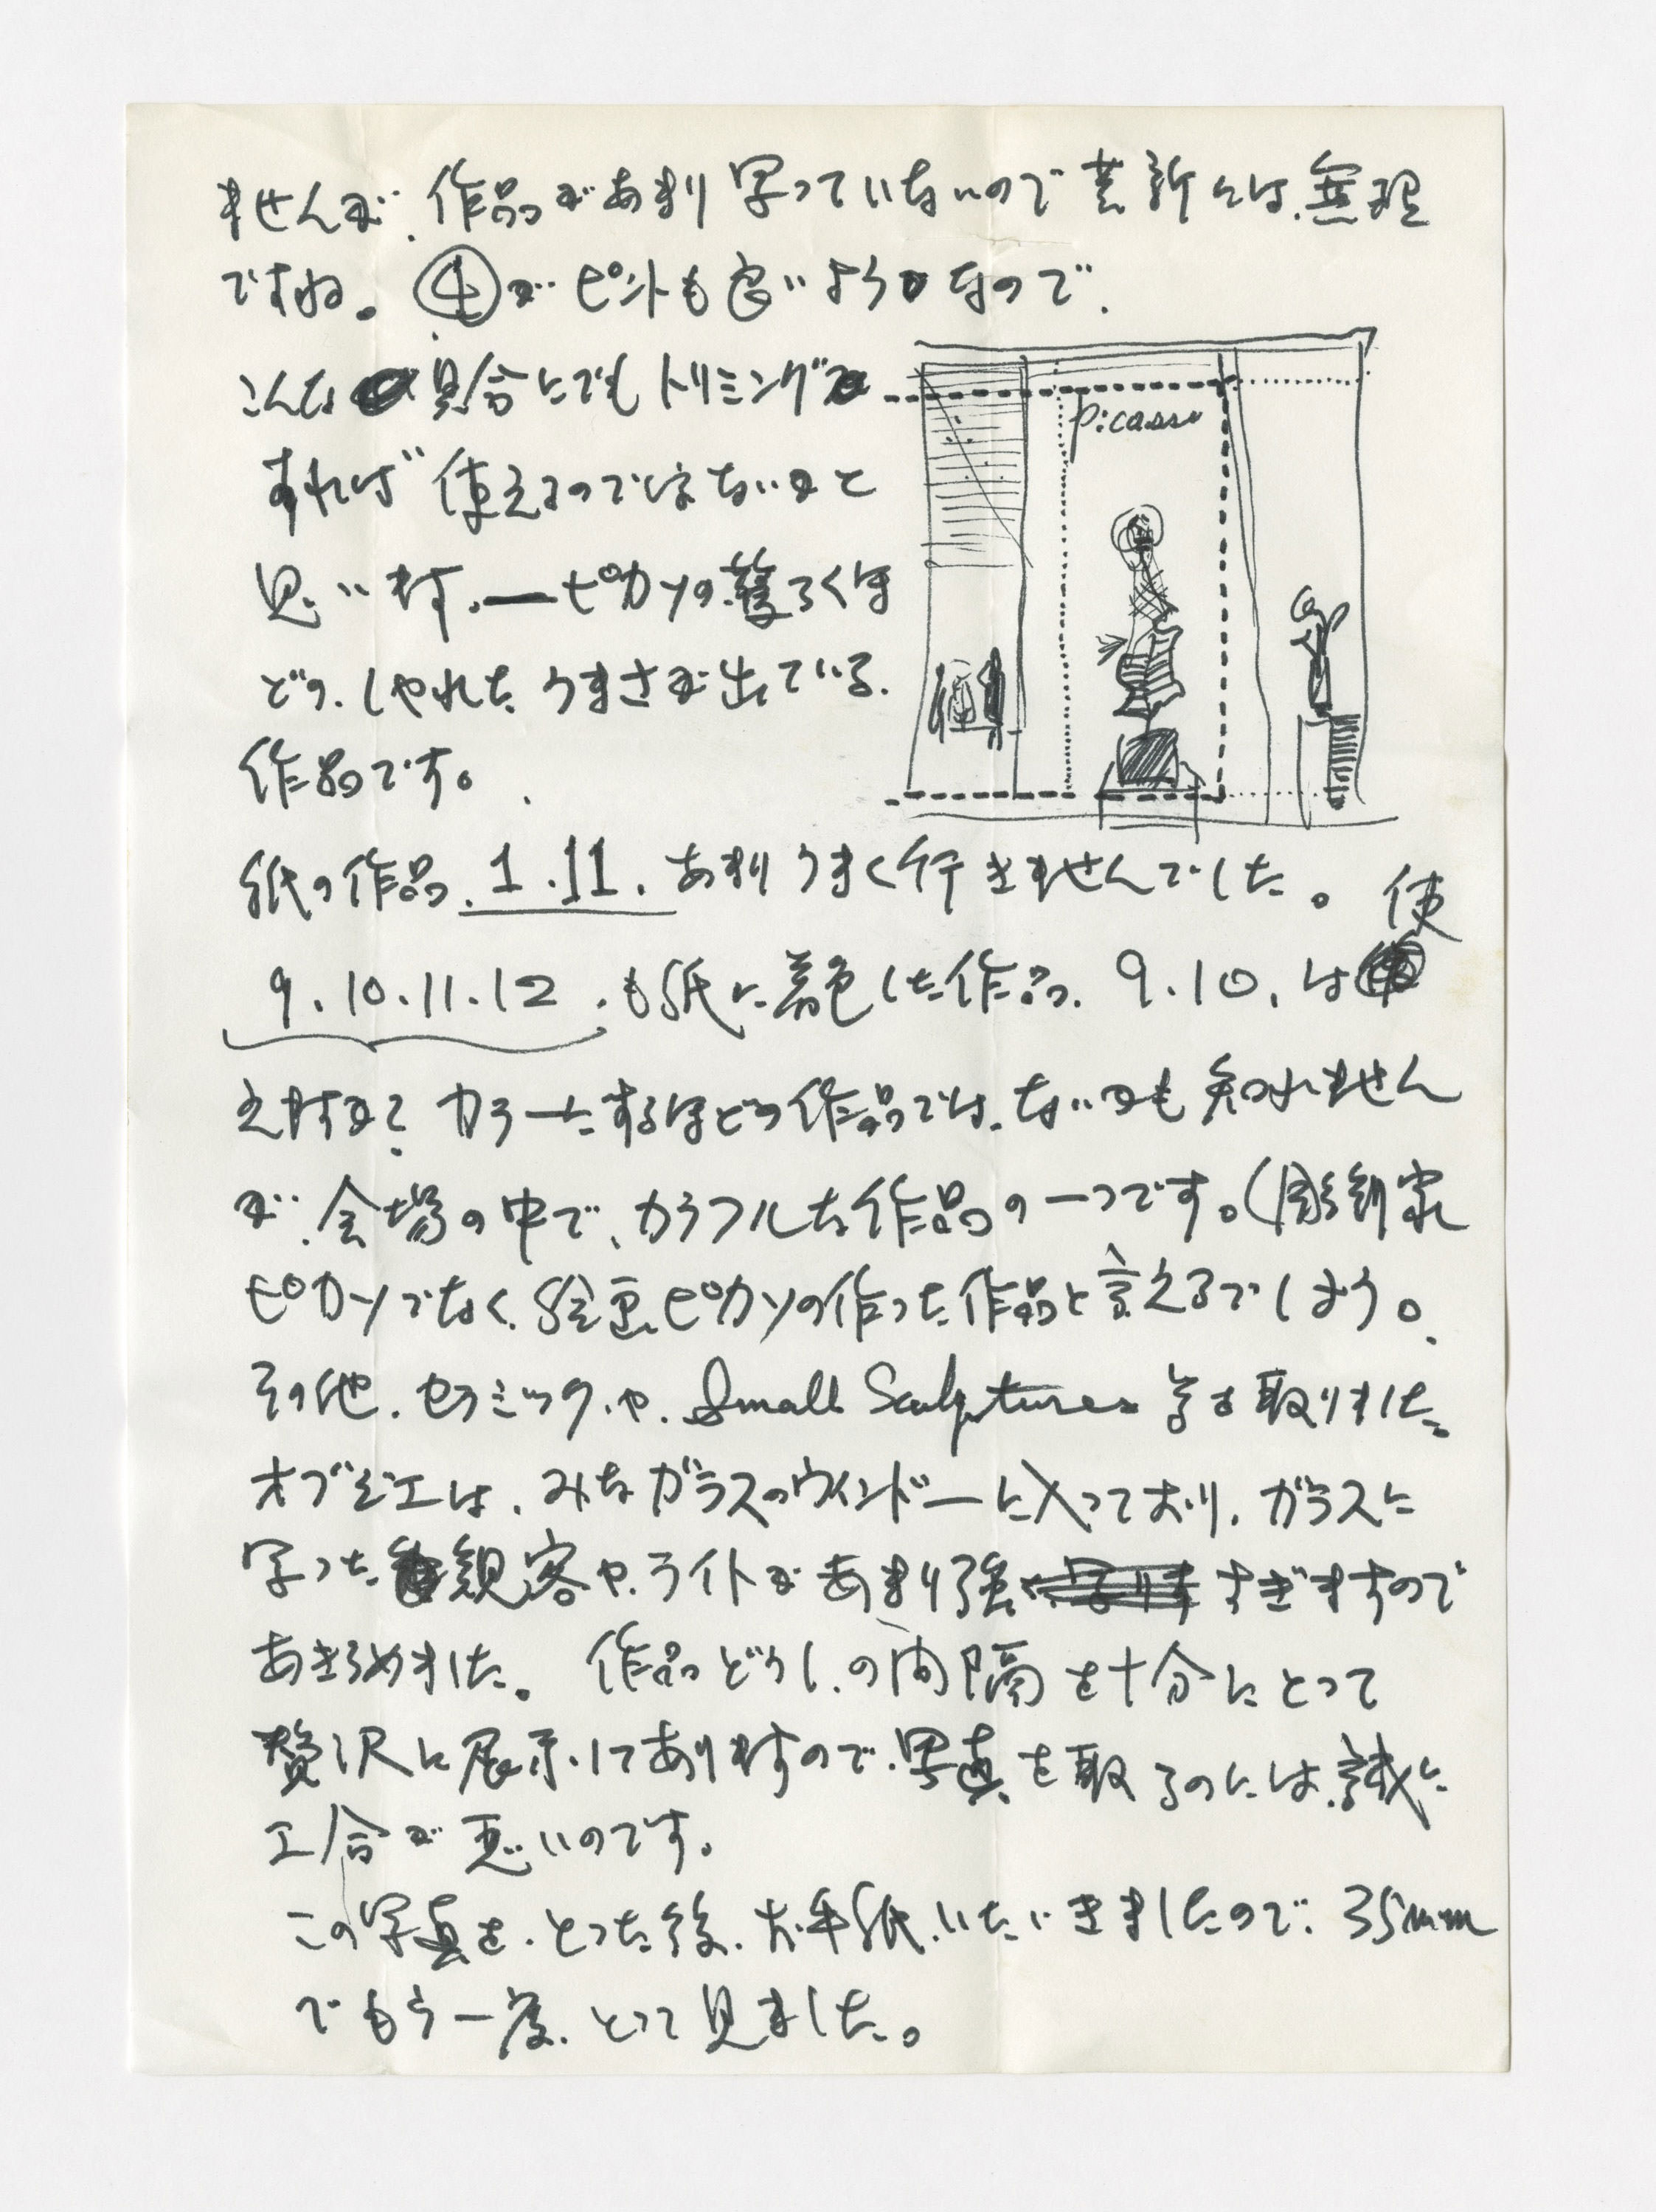 ませんが、作品があまり写っていないので芸新には、無理
ですね。④がピントも良いようなので、
こんな具合にでもトリミング
Picasso
すれば使えるのではないかと
思います。—ピカソの驚ろくほ
どの、しゃれた、うまさが出ている、
作品です。
紙の作品、1.11. あまりうまく行きませんでした。使
9.10.11.12.も紙に着色した作品、9.10.は
えますか？カラーにするほどの作品では、ないかも知れません
が、会場の中で、カラフルな作品の一つです。(彫刻家
ピカソでなく、絵画ピカソの作った作品と言えるでしょう。
その他、セラミック、や、Small Sculptures 等も取りました。
オブジェは、みなガラスのウインドーに入っており、ガラスに
写った観客や、ライトがあまり強すぎますので
あきらめました。作品どうし、の間隔を十分にとって
贅沢に展示、してありますので、写真を取るのには、誠に
工合が悪いのです。
この写真を、とった後、お手紙、いただきましたので、35mm
でもう一度、とって見ました。